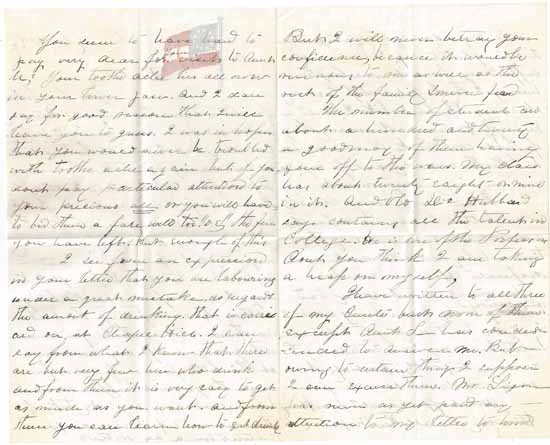 You seem to have had to
pay very dear for visits to Aunt
M. Your tooth ache has all over
in your lower jaw. And I dare
say for good reason that I will
leave you to guess. I was in hopes
that you would never be troubled
with tooth ache again but if you
dont pay particular attention to
your precious all or you will have
to bid them a fare well too of the few
you have left. But enough of this
I see from an expression
in your letter that you are labouring
under a great mistake, as regards
the amout of drinking that is carri
ed on at Chapel Hill. I can
say from what I know that there
are but very few who drink
and from them it is very easy to get
as much as you want. and from
them you can learn how to get drunk
But I will never betray your
confidence because it would be
to me as well as the
rest of the family
The number of students is
about a hundred and twenty
a good many of them having
gone off to the wars. My class
has about twenty eight or nine
in it. And Old Dr. Hubbard
says contains all the talent in
College. He is one of the Professors
Dont you think I am taking
a heap on myself,
I have written to all three
of my Aunts but none of them
except Aunt J has conde
cended to answer me. But
owing to certain things I suppose
I can excuse them. Mr.
has never as yet paid any
attention to my letter to